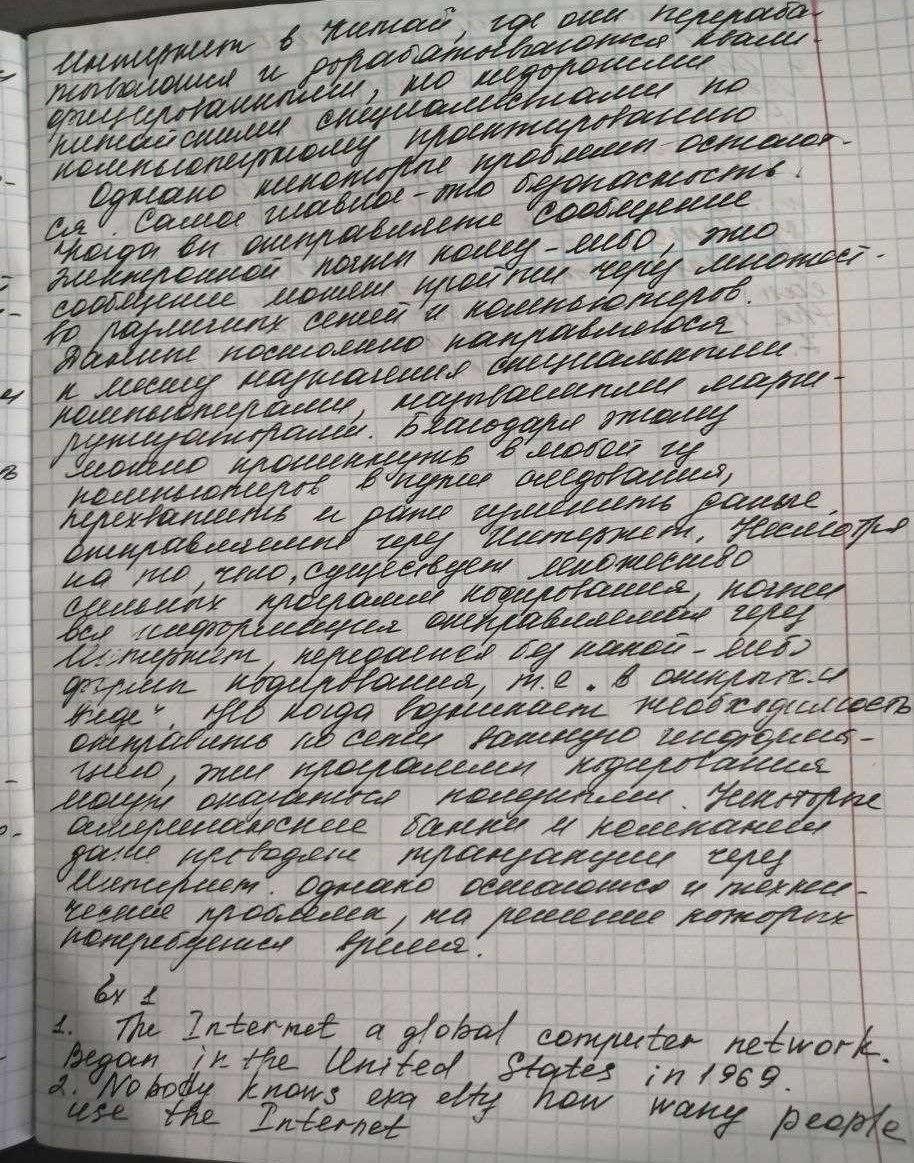 Интернет в Китай, где они перераба-
тываются и дорабатываются квали-
фицированными, но недорогими
китайскими специалистами по
компьютерному проектированию
Однако некоторые проблемы остают-
ся. Самое главное - это безопасность.
Когда вы отправляете сообщение
электронной почты кому-либо, это
сообщение может пройти через множест-
во различных сетей и компьютеров.
Данные постоянно направляются
к месту назначения специальными
компьютерами, называемыми марш-
рутизаторами. Благодаря этому
можно проникнуть в любой из
компьютеров в пути следования,
перехватить и даже изменить данные,
отправляемые через Интернет. Несмотря
на то, что, существует множество
сильных программ кодирования, почти
вся информация отправляемая через
Интернет, передается без какой-либо
формы кодирования, т.е. "в открытом
виде". Но когда возникает необходимость
отправить по сети важную информа-
цию, эти программы кодирования
могут оказаться полезными. Некоторые
американские банки и компании
даже проводят транзакции через
Интернет. Однако остаются и техни-
ческие проблемы, на решение которых
потребуется время.
Ex 1
1. The Internet a global computer network.
Began in the United States in 1969.
2. Nobody knows exa elty how wany people
use the Internet